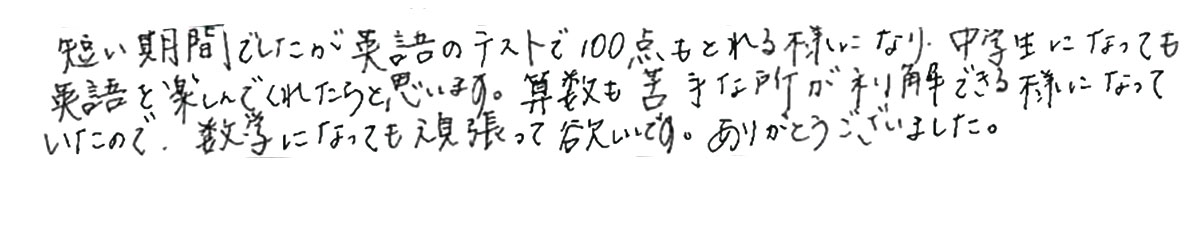 短い期間でしたが英語のテストで100点もとれる様になり、中学生になっても
英語を楽しんでくれたらと思います。算数も苦手な所が理解できる様になって
いたので、数学になっても頑張って欲しいです。ありがとうございました。